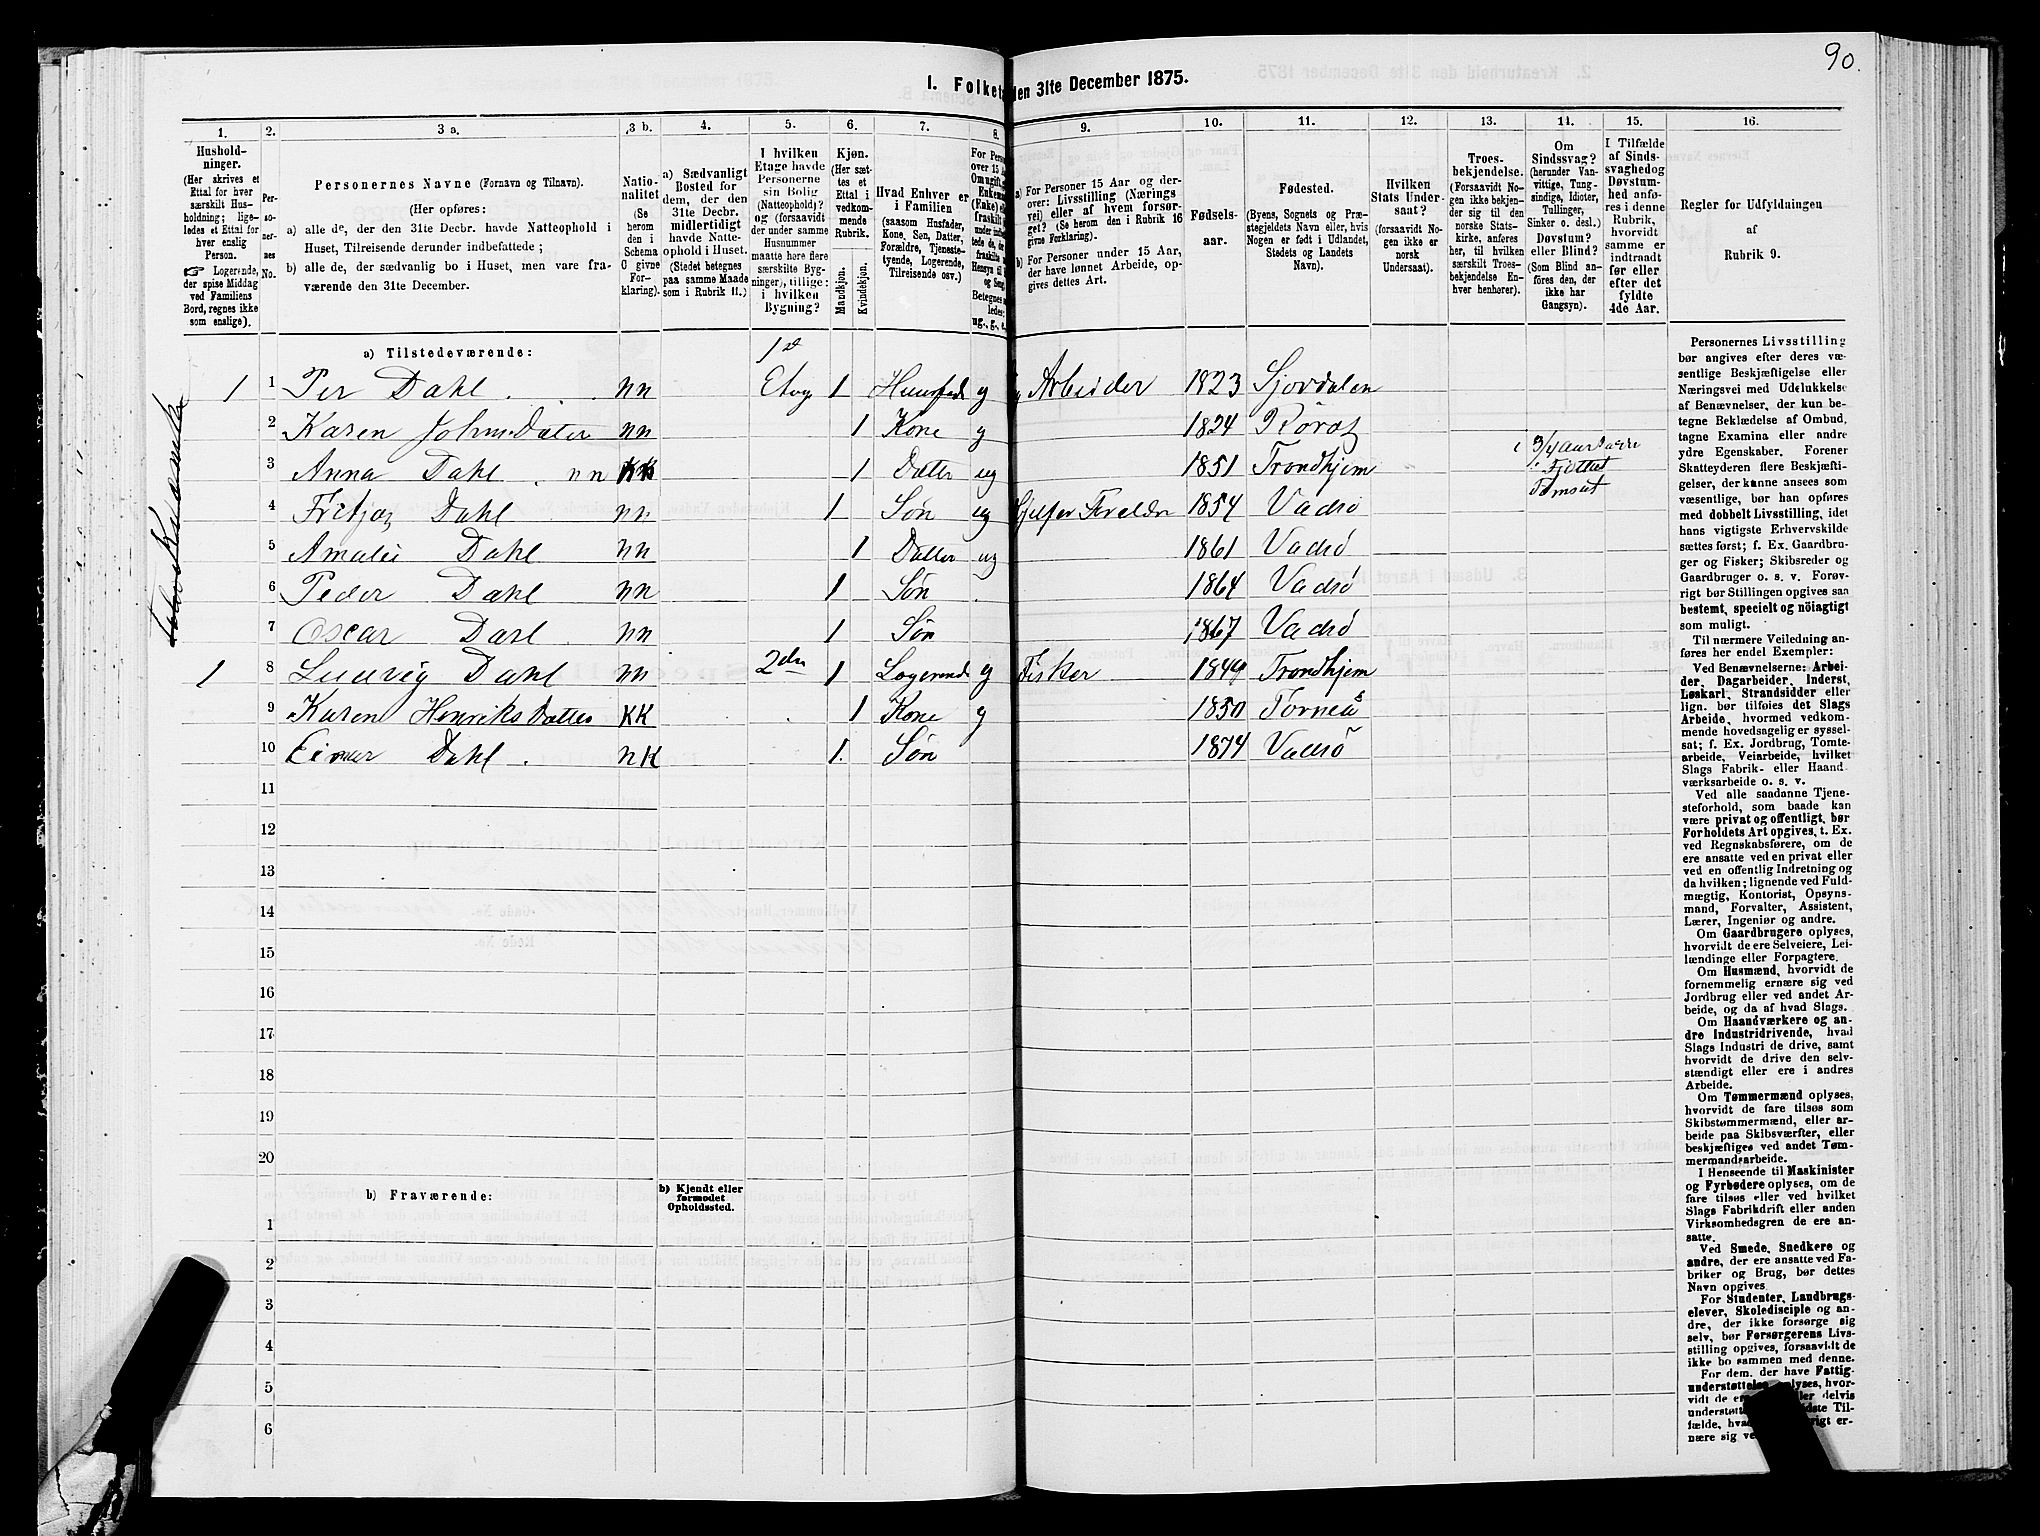 90.
I. Folketa
den 31te December 1875.
1.
2.
3 a.
3 b.
4.
5.
6.
7.
8.
9.
10.
11.
12.
13.
14.
15.
16.
Hushold-
ninger.
(Her skrives et
Ettal for hver
særskilt Hus-
holdning; lige-
ledes et Ettal for
hver enslig
Person.
☞ Logerende,
der spise Middag
ved Familiens
Bord, regnes ikke
som enslige).
Per-
so-
ner-
nes
No.
Personernes Navne (Fornavn og Tilnavn).
(Her opføres:
a) alle de, der den 31te Decbr. havde Natteophold i
Huset, Tilreisende derunder indbefattede;
b) alle de, der sædvanlig bo i Huset, men vare fra-
værende den 31te December.
Natio-
nalitet
(Se
herom
den i
Schema
C givne
For-
klaring).
a) Sædvanligt
Bosted for
dem, der den
31te Decbr.
midlertidigt
havde Natte-
ophold i Huset.
(Stedet betegnes
paa samme Maade
som i Rubrik 11.)
I hvilken
Etage havde
Personerne
sin Bolig
(Natteophold)?
og (forsaavidt
der under samme
Husnummer
maatte høre flere
særskilte Byg-
ninger), tillige:
i hvilken
Bygning?
Kjøn.
(Her sæt-
tes et
Ettal i
vedkom-
mende
Rubrik.
Mandkjøn.
Kvindekjøn.
Hvad Enhver er
i Familien
(saasom Husfader,
Kone, Søn, Datter,
Forældre, Tjeneste-
tyende, Logerende,
Tilreisende osv.)
For Perso
over 15 A
Om ugift,
Enkema
(Enke)
fraskilt
a) For Personer 15 Aar og der-
over: Livsstilling (Nærings-
vei) eller af hvem forsør-
get? (Se herom den i Rubrik 16
givne Forklaring).
b) For Personer under 15 Aar,
der have lønnet Arbeide, op-
gives dettes Art.
Fødsels-
aar.
Fødested.
(Byens, Sognets og Præ-
stegjeldets Navn eller, hvis
Nogen er født i Udlandet,
Stedets og Landets
Navn).
Hvilken
Stats Under-
saat?
(forsaavidt No-
gen ikke er
norsk
Undersaat).
Troes-
bekjendelse.
(Forsaavidt No-
gen ikke bekjen-
der sig til den
norske Stats-
kirke, anføres
her, til hvilken
særskilt Troes-
bekjendelse En-
hver henhører).
Om
Sindssvag?
(herunder Van-
vittige, Tung-
sindige, Idioter,
Tullinger,
Sinker o. desl.)
Døvstum?
eller Blind?
(Som Blind an-
føres den, der
ikke har
Gangsyn).
I Tilfælde
af Sinds-
svaghed og
Døvstum-
hed anfø-
res i denne
Rubrik,
hvorvidt
samme er
indtraadt
før eller
efter det
fyldte
4de Aar.
Regler for Udfyldningen
af
Rubrik 9.
a) Tilstedeværende:
1 1 Per Dahl nn 1st Etage 1 Huusfad g Arbeider 1823 Sjordalen
2 Karen JohnsDatter nn 1 Kone g 1824 Røros
3 Anna Dahl nn 1 Datter ug 1851 Trondhjem
4 Fritjog Dahl nn 1 Søn ug Hjelper Forældre 1854 Vadsø
5 Amalie Dahl nn 1 Datter ug 1861 Vadsø
6 Peder Dahl nn 1 Søn 1864 Vadsø
7 Oscar Dahl nn 1 Søn 1867 Vadsø
1 8 Ludvig Dahl nn 2den 1 Logerende g Fisker 1849 Trondhjem
9 Karen HenriksDatter KK 1 Kone g 1850 Torneå
10 Einar Dahl nK 1. Søn 1874 Vadsø
11
12
13
14
15
16
17
18
19
20
b) Fraværende:
b) Kjendt eller
formodet
Opholdssted.
1
2
3
4
5
6
Personernes Livsstilling
bør angives efter deres væ-
sentlige Beskjæftigelse eller
Næringsvei med Udelukkelse
af Benævnelser, der kun be-
tegne Beklædelse af Ombud,
tagne Examina eller andre
ydre Egenskaber. Forener
Skatteyderen flere Beskjæfti-
gelser, der kunne ansees som
væsentlige, bør han opføres
med dobbelt Livsstilling, idet
hans vigtigste Erhvervskilde
sættes først; f. Ex. Gaardbru-
ger og Fisker; Skibsreder og
Gaardbruger o. s. v. Forøv-
rigt bør Stillingen opgives saa
bestemt, specielt og nöiagtigt
som muligt.
Til nærmere Veiledning an-
føres her endel Exempler:
Ved Benævnelserne: Arbei-
der, Dagarbeider, Inderst,
Løskarl, Strandsidder eller
lign. bør tilføies det Slags
Arbeide, hvormed vedkom-
mende hovedsagelig er syssel-
sat; f. Ex. Jordbrug, Tomte-
arbeide, Veiarbeide, hvilket
Slags Fabrik- eller Haand
værksarbeide o. s. v.
Ved alle saadanne Tjene-
steforhold, som baade kan
være privat og offentligt, bør
Forholdets Art opgives, t. Ex.
ved Regnskabsførere, om de
ere ansatte ved en privat eller
ved en offentlig Indretning og
da hvilken; lignende ved Fuld-
mægtig, Kontorist, Opsyns-
mand, Forvalter, Assistent,
Lærer, Ingeniør og andre.
Om Gaardbrugere oplyses,
hvorvidt de ere Selveiere, Lei-
lændinge eller Forpagtere.
Om Husmænd, hvorvidt de
fornemmelig ernære sig ved
Jordbrug eller ved andet Ar-
beide, og da af hvad Slags.
Om Haandværkere og an-
dre Industridrivende, hvad
Slags Industri de drive, samt
hvorvidt de drive den selv-
stændigt eller ere i andres
Arbeide.
Om Tømmermænd oplyses,
hvorvidt de fare tilsøs som
Skibstømmermænd, eller ar-
beide paa Skibsværfter, eller
beskjæftiges ved andet Tøm-
mermandsarbeide.
I Henseende til Maskinister
og Fyrbødere oplyses, om de
fare tilsøs eller ved hvilket
Slags Fabrikdrift eller anden
Virksomhedsgren de ere an-
satte.
Ved Smede, Snedkere og
andre, der ere ansatte ved Fa-
briker og Brug, bør dettes
Navn opgives
For Studenter, Landbrugs-
elever, Skoledisciple og an-
dre, der ikke forsørge sig
selv, bør Forsørgerens Livs-
stilling opgives, forsaavidt de
ikke bo sammen med denne.
For dem, der have Fattig-